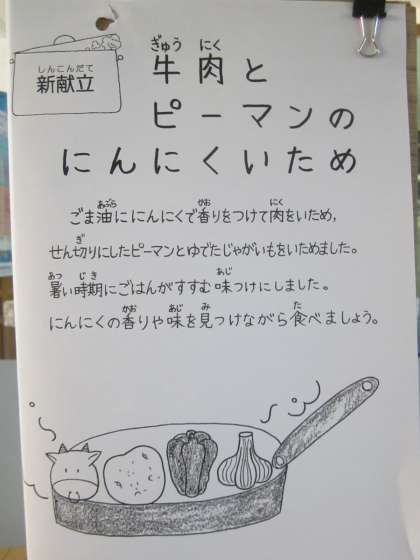 しんこんだて
新献立
ぎゅう にく
牛肉と
ピーマンの
にんにくいため
あぶら かお にく
ごま油ににんにくで香りをつけて肉をいため,
ぎ
せん切りにしたピーマンとゆでたじゃがいもをいためました。
あつ じき あじ
暑い時期にごはんがすすむ味つけにしました。
かお あじ み た
にんにくの香りや味を見つけながら食べましょう。